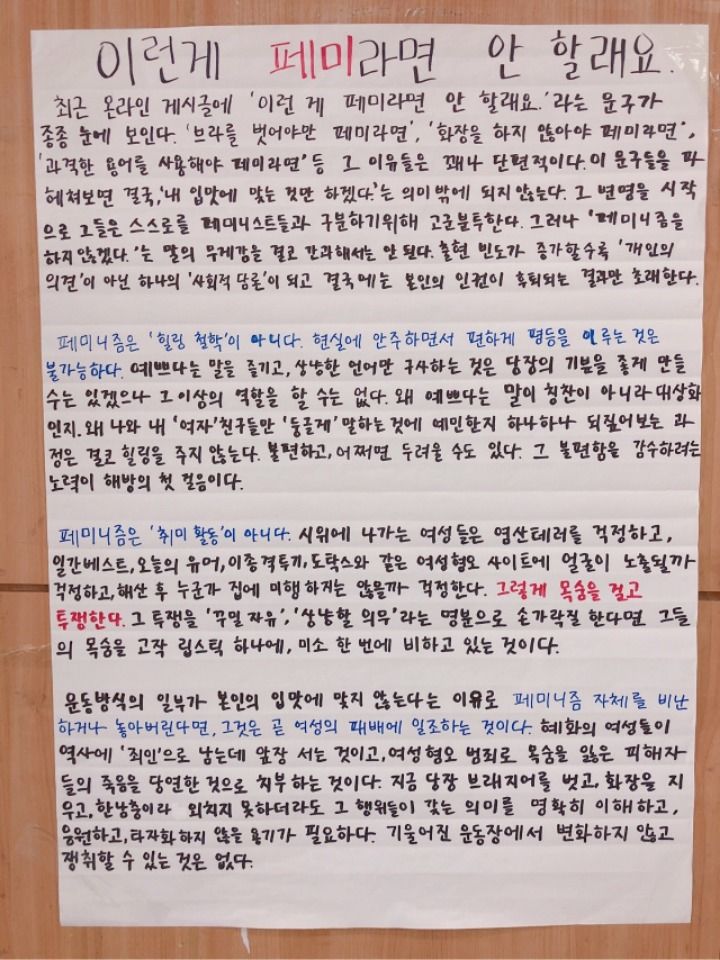 이런게 페미라면 안 할래요.
최근 온라인 게시글에 '이런 게 페미라면 안 할래요.'라는 문구가
종종 눈에 보인다. '브라를 벗어야만 페미라면', '화장을 하지 않아야 페미라면',
'과격한 용어를 사용해야 페미라면' 등 그 이유들은 꽤나 단편적이다. 이 문구들을 파
헤쳐보면 결국, '내 입맛에 맞는 것만 하겠다.'는 의미 밖에 되지 않는다. 그 변명을 시작
으로 그들은 스스로를 페미니스트들과 구분하기위해 고군분투한다. 그러나 '페미니즘을
하지 않겠다.'는 말의 무게감을 결코 간과해서는 안 된다. 출현 빈도가 증가할수록 '개인의
의견'이 아닌 하나의 '사회적 담론'이 되고 결국에는 본인의 인권이 후퇴되는 결과만 초래한다.
페미니즘은 '힐링 철학'이 아니다. 현실에 안주하면서 편하게 평등을 이루는 것은
불가능하다. 예쁘다는 말을 즐기고, 상냥한 언어만 구사하는 것은 당장의 기분을 좋게 만들
수는 있겠으나 그 이상의 역할을 할 수는 없다. 왜 예쁘다는 말이 칭찬이 아니라 대상화
인지. 왜 나와 내 '여자'친구들만 '둥글게' 말하는 것에 예민한지 하나하나 되짚어보는 과
정은 결코 힐링을 주지 않는다. 불편하고, 어쩌면 두려울 수도 있다. 그 불편함을 감수하려는
노력이 해방의 첫 걸음이다.
페미니즘은 '취미 활동'이 아니다. 시위에 나가는 여성들은 염산테러를 걱정하고,
일간베스트, 오늘의 유머, 이종격투기, 도탁스와 같은 여성혐오 사이트에 얼굴이 노출될까
걱정하고, 해산 후 누군가 집에 미행하지는 않을까 걱정한다. 그렇게 목숨을 걸고
투쟁한다. 그 투쟁을 '꾸밀 자유', '상냥할 의무'라는 명분으로 손가락질 한다면 그들
의 목숨을 고작 립스틱 하나에, 미소 한 번에 비하고 있는 것이다.
운동방식의 일부가 본인의 입맛에 맞지 않는다는 이유로 페미니즘 자체를 비난
하거나 놓아버린다면, 그것은 곧 여성의 패배에 일조하는 것이다. 혜화의 여성들이
역사에 '죄인'으로 남는데 앞장 서는 것이고, 여성혐오 범죄로 목숨을 잃은 피해자
들의 죽음을 당연한 것으로 치부하는 것이다. 지금 당장 브래지어를 벗고, 화장을 지
우고, 한남충이라 외치지 못하더라도 그 행위들이 갖는 의미를 명확히 이해하고,
응원하고, 타자화하지 않을 용기가 필요하다. 기울어진 운동장에서 변화하지 않고
쟁취할 수 있는 것은 없다.